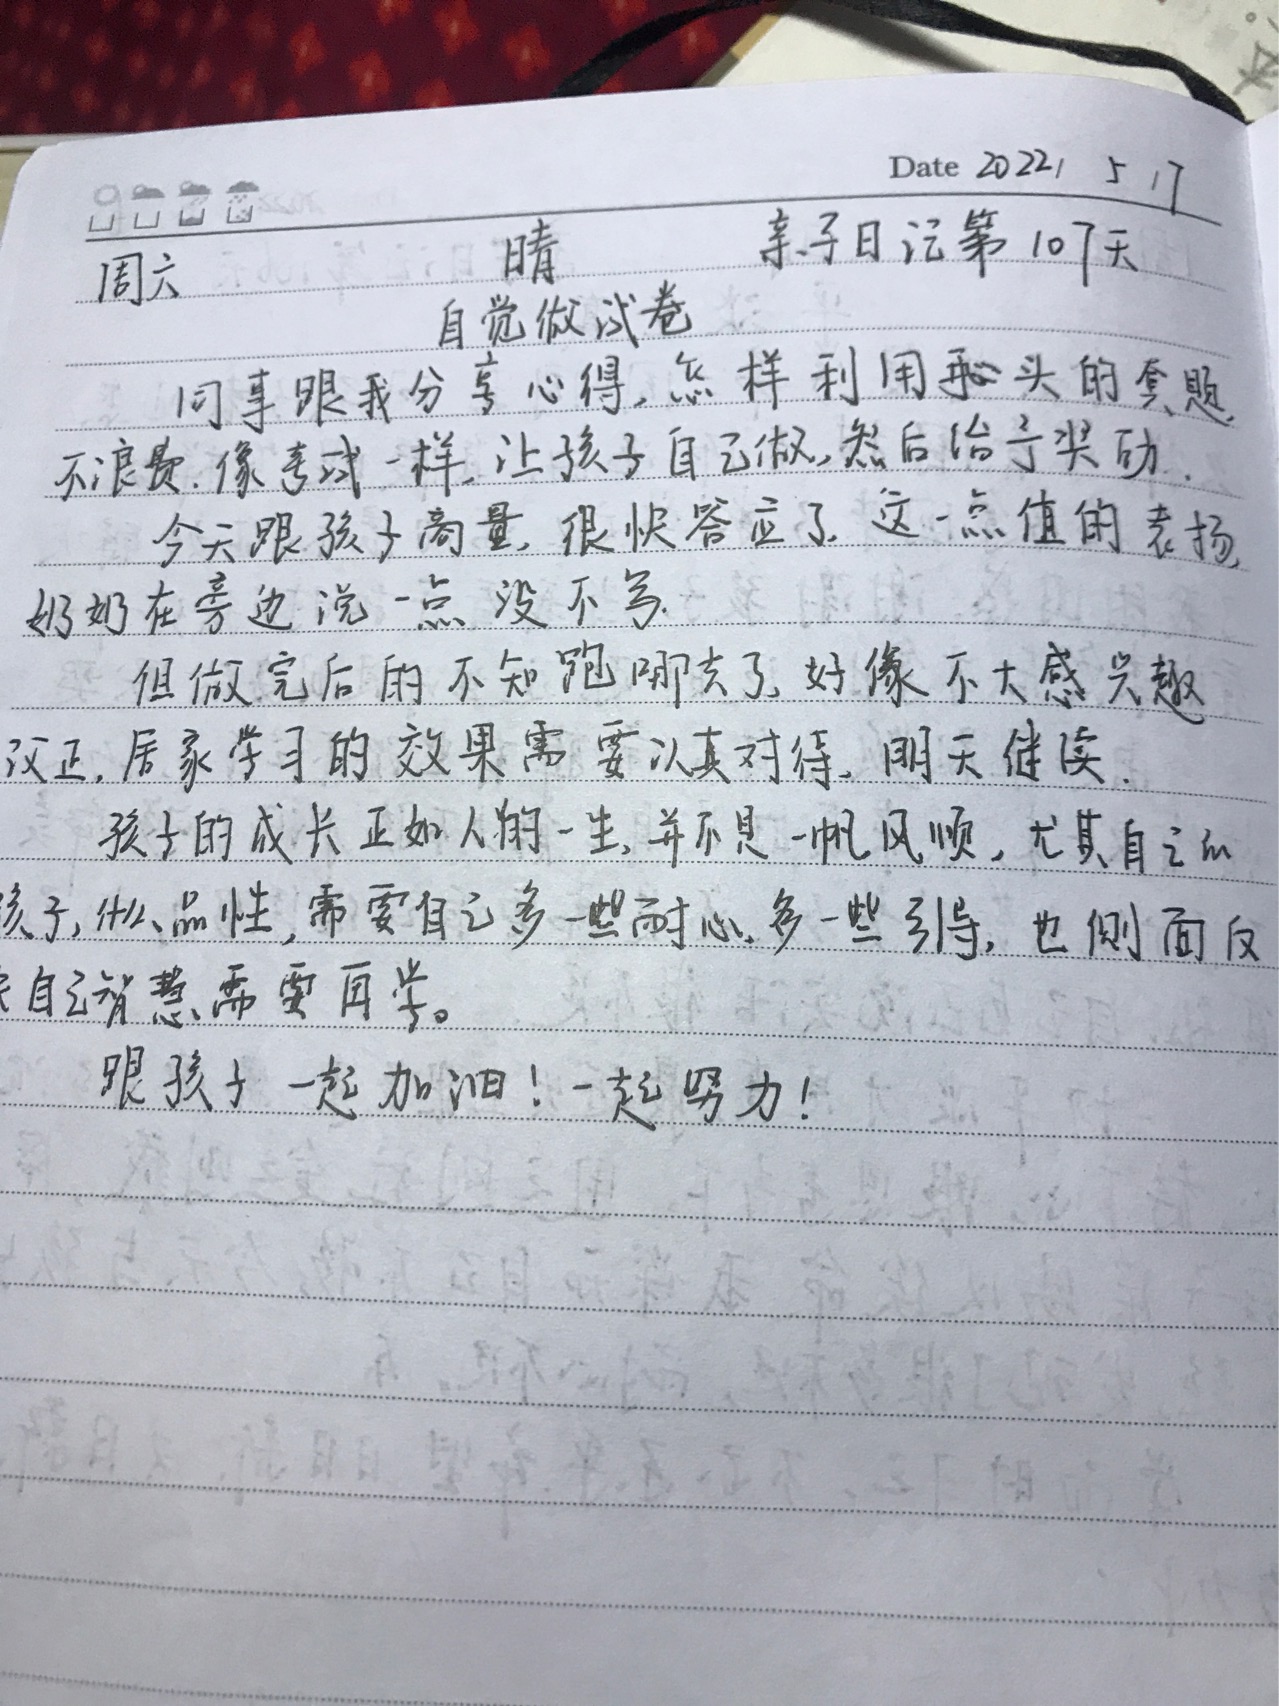 Date 2022, 5, 17
周六 晴 亲子日记第107天
自觉做试卷
同事跟我分享心得,怎样利用手头的套题,
不浪费.像考试一样,让孩子自己做,然后给予奖励.
今天跟孩子商量,很快答应了,这一点值的表扬,
奶奶在旁边说一点没不写.
但做完后的不知跑哪去了,好像不大感兴趣
改正,居家学习的效果需要认真对待,明天继续.
孩子的成长正如人的一生,并不是一帆风顺,尤其自己的
孩子,什么品性,需要自己多一些耐心,多一些引导,也侧面反
自己智慧需要再学。
跟孩子一起加油!一起努力!